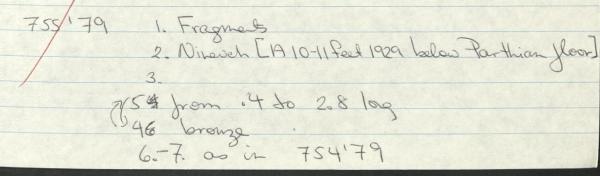 755'79 1. Fragments
2. Nineveh [IA 10-11 feet 1929 below Parthian floor]
3.
5 from .4 to 2.8 log
4 bronze
6.-7. as in 754'79